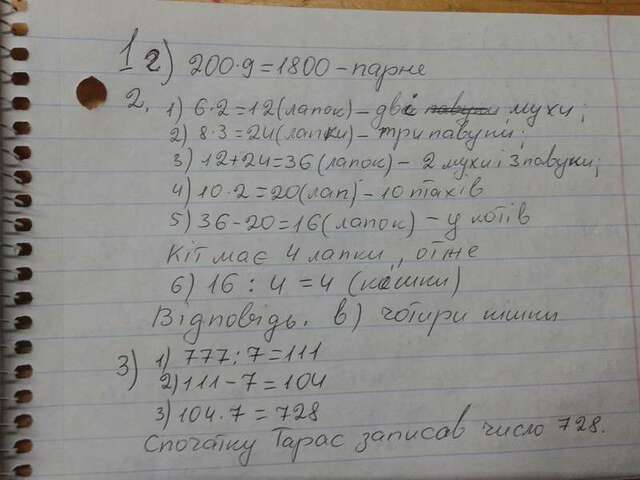 1 г) 200·9=1800 – парне
2. 1) 6·2=12(лапок) – дві павуки мухи;
2) 8·3=24(лапки) – три павуки;
3) 12+24=36(лапок) – 2 мухи і 3 павуки;
4) 10·2=20(лап) – 10 птахів
5) 36-20=16(лапок) – у котів
Кіт має 4 лапки, отже
6) 16 : 4 = 4 (кішки)
Відповідь. в) чотири кішки
3) 1) 777:7=111
2) 111-7=104
3) 104·7=728
Спочатку Тарас записав число 728.